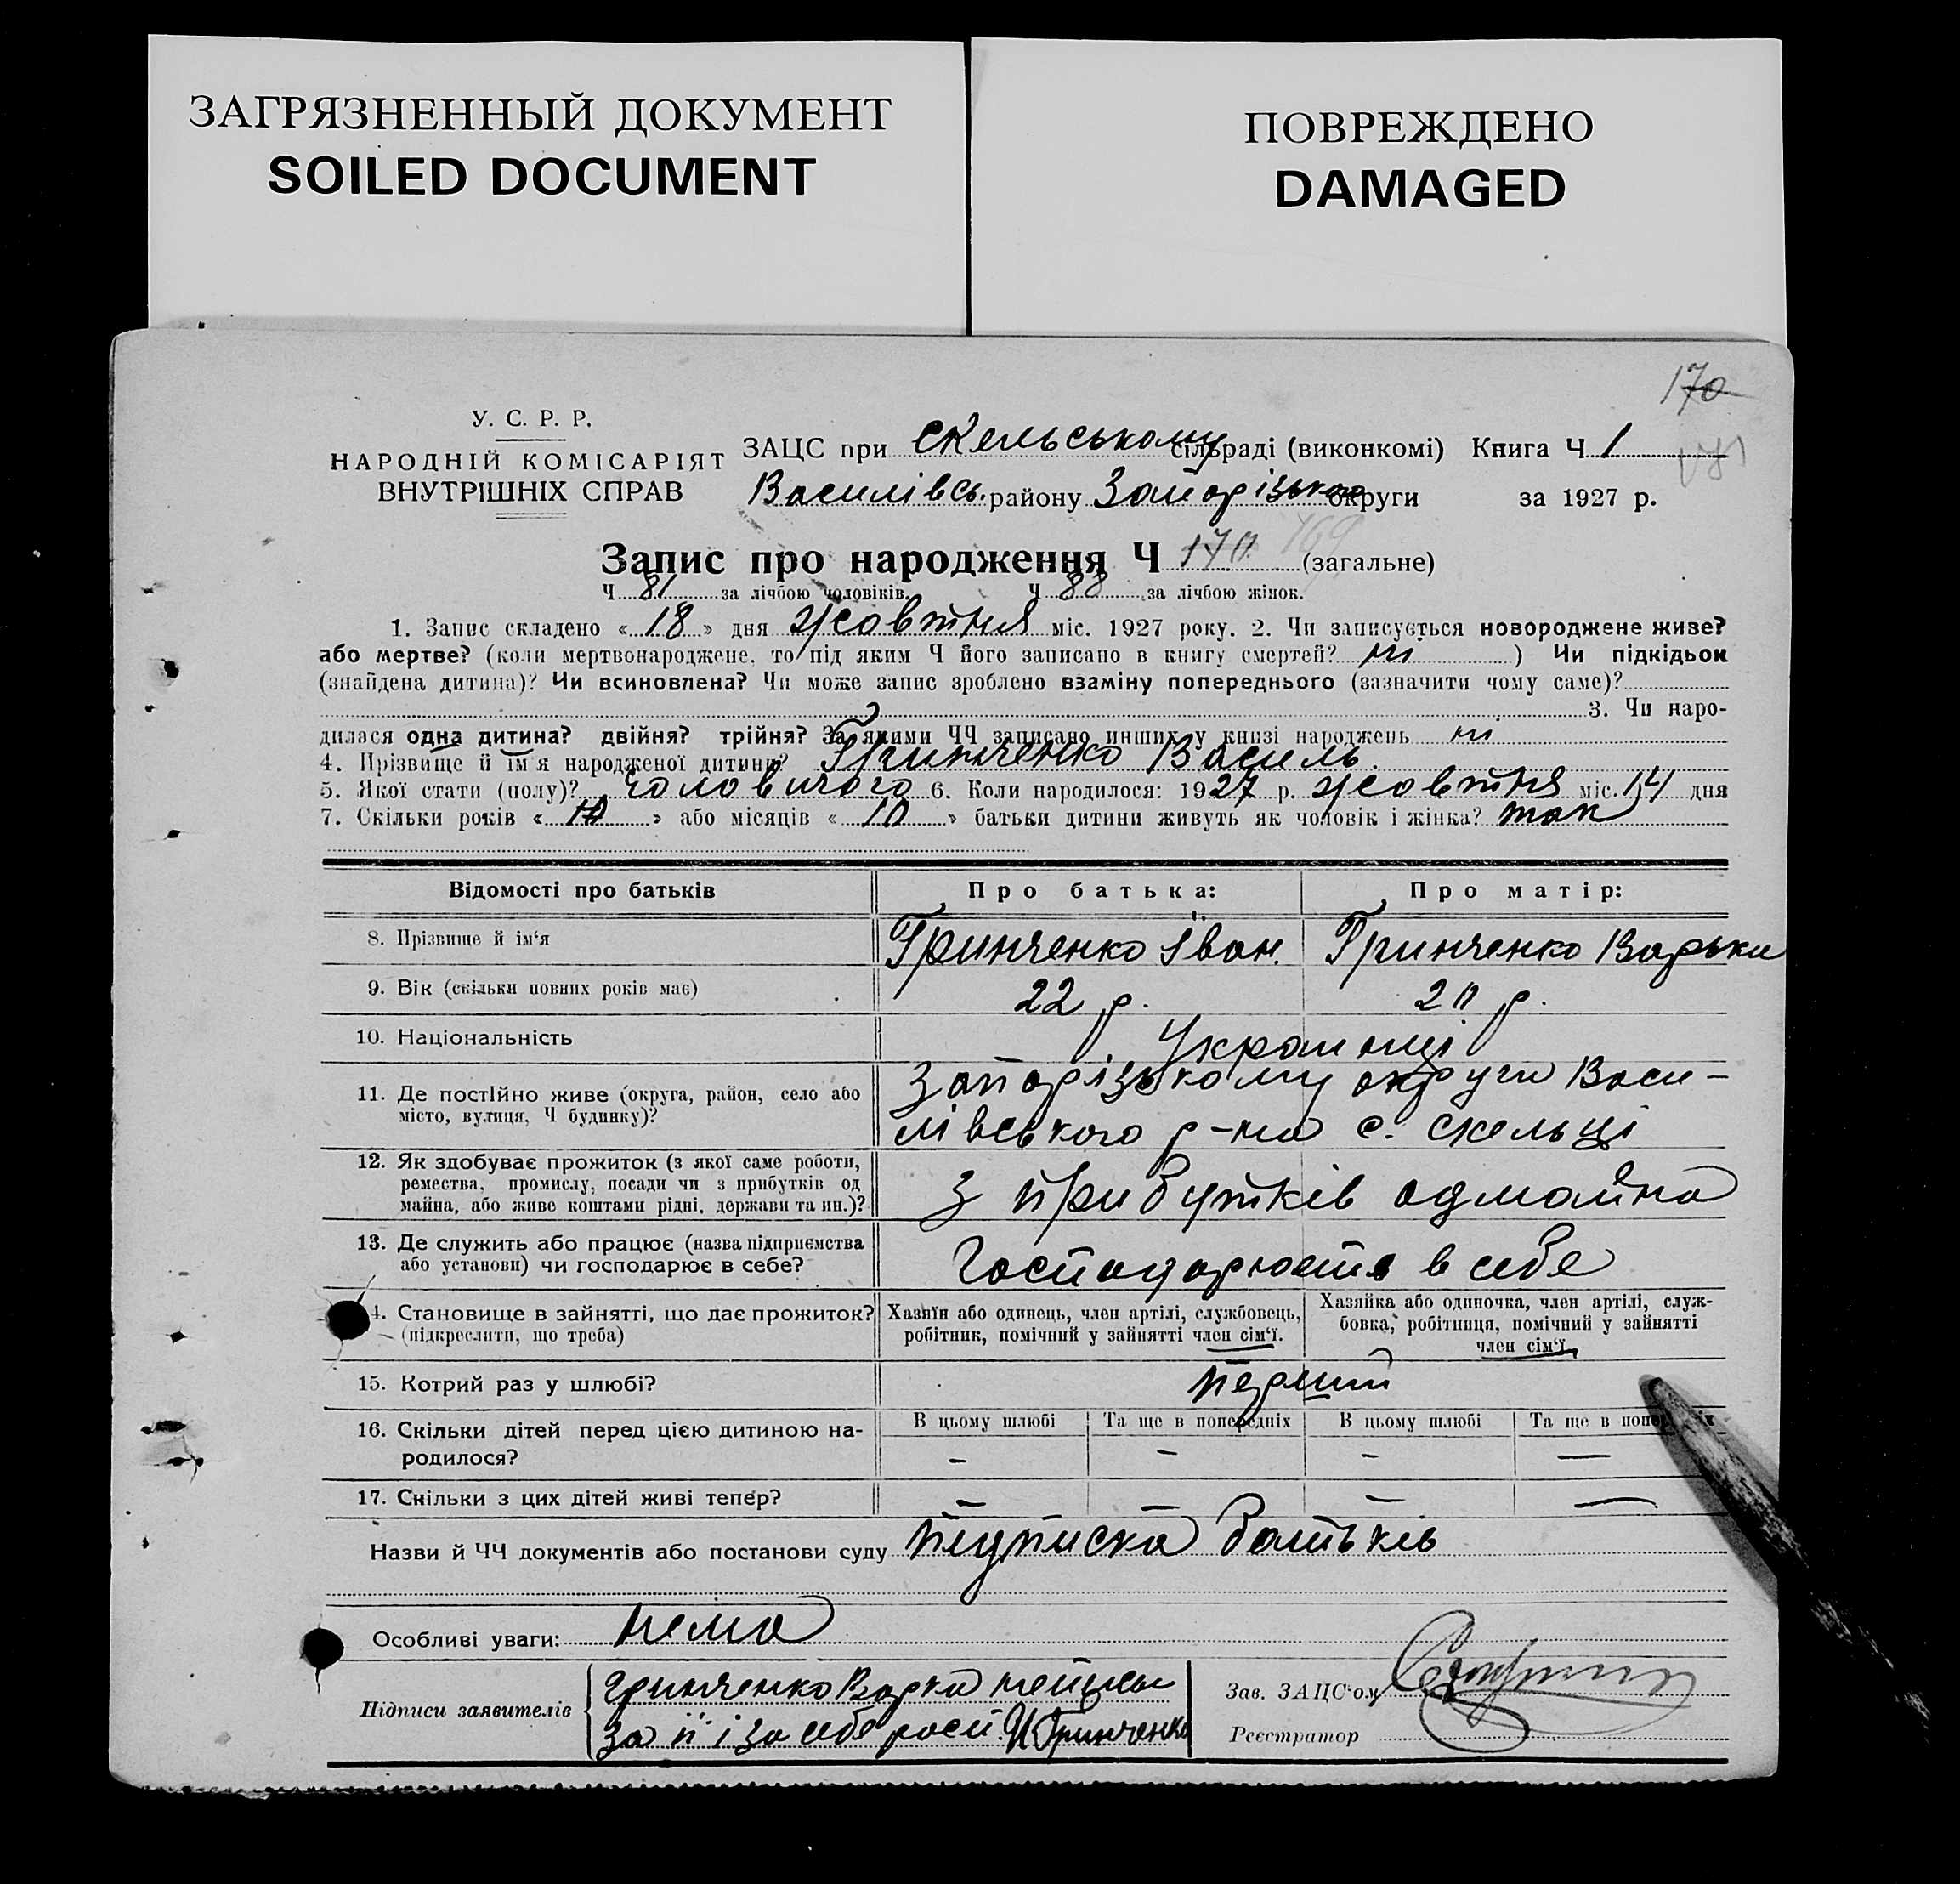 ЗАГРЯЗНЕННЫЙ ДОКУМЕНТ
SOILED DOCUMENT
ПОВРЕЖДЕНО
DAMAGED
170
У. С. Р. Р.
НАРОДНІЙ КОМІСАРІЯТ
ВНУТРІШНІХ СПРАВ
ЗАЦС при Скельському сільраді (виконкомі) Книга Ч 1
Василівсь. району Запорізькою округи за 1927 р.
Запис про народження Ч 170 169 (загальне)
Ч 81 за лічбою чоловіків. Ч 88 за лічбою жінок.
1. Запис складено « 18 » дня жовтня міс. 1927 року. 2. Чи записується новороджене живе?
або мертве? (коли мертвонароджене, то під яким Ч його записано в книгу смертей? ні ) Чи підкідьок
(знайдена дитина)? Чи всиновлена? Чи може запис зроблено взаміну попереднього (зазначити чому саме)?
3. Чи наро-
дилася одна дитина? двійня? трійня? За якими ЧЧ записано инших у книзі народжень ні
4. Прізвище й ім'я народженої дитини? Гринченко Василь.
5. Якої стати (полу)? чоловичого 6. Коли народилося: 1927 р. жовтня міс. 14 дня
7. Скільки років « » або місяців « 10 » батьки дитини живуть як чоловік і жінка? так
Відомості про батьків Про батька: Про матір:
8. Прізвище й ім'я Гринченко Іван. Гринченко Варька
9. Вік (скільки повних років має) 22 р. 20 р.
10. Національність Украинці
11. Де постійно живе (округа, район, село або
місто, вулиця, Ч будинку)?
Запорізькому округи Васи-
лівського р-на с. Скельці
12. Як здобуває прожиток (з якої саме роботи,
ремества, промислу, посади чи з прибутків од
майна, або живе коштами рідні, держави та ин.)?
З прибутків одмайна
13. Де служить або працює (назва підприємства
або установи) чи господарює в себе?
Господарюють в себе
4. Становище в зайнятті, що дає прожиток?
(підкреслити, що треба)
Хазяїн або одинець, член артілі, службовець,
робітник, помічний у зайнятті член сім'ї.
Хазяйка або одиночка, член артілі, служ-
бовка, робітниця, помічний у зайнятті
член сім'ї.
15. Котрий раз у шлюбі? перший
16. Скільки дітей перед цією дитиною на-
родилося?
В цьому шлюбі Та ще в попередніх В цьому шлюбі Та ще в
– – – –
17. Скільки з цих дітей живі тепер? – – – –
Назви й ЧЧ документів або постанови суду підписка батьків
Особливі уваги: нема
Підписи заявителів
Гринченко Варка
за її і за себе И Гринченко
Зав. ЗАЦС'ом
Реєстратор